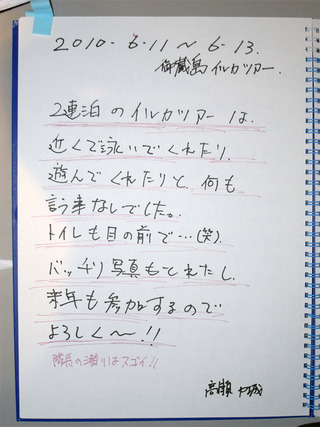 2010- 6-11 〜 6-13.
御蔵島 イルカツアー.
2連泊 のイルカツアーは、
近くで泳いでくれたり、
遊んでくれたりと 何も
言う事なしでした。
トイレも目の前で…(笑).
バッチリ 写真もとれたし、
来年も参加するので
よろしく〜!!
隊長の潜りはスゴイ!!
高瀬